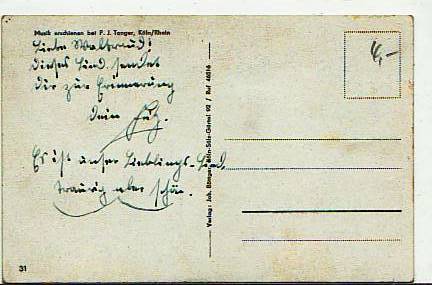 Musik erschienen bei P. J. Tonger, Köln/Rhein
Liebe Waltraud!
dieses Lied sendet
dir zur Erinnerung
dein
Es ist unser Lieblings-Lied,
traurig aber schön.
4,-
Verlag: Joh. Köln-Sülz-Gürtel 92 / Ruf 46616
31